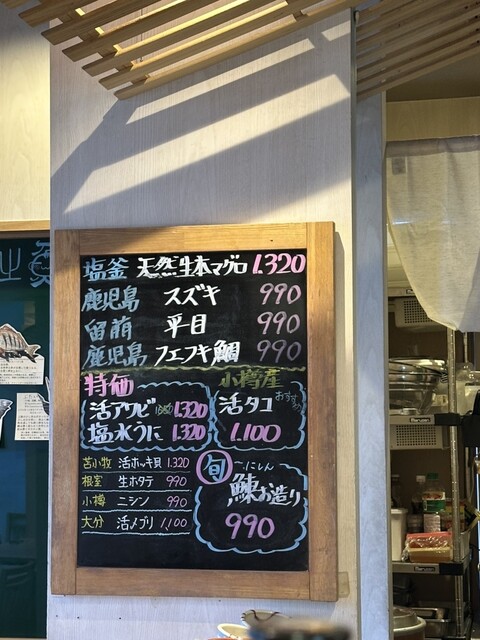 塩釜 天然生本マグロ 1.320
鹿児島 スズキ 990
留萌 平目 990
鹿児島 フエフキ鯛 990
特価
活アワビ 1.320
塩水うに 1.320
小樽産
活タコ おすすめ
1.100
苫小牧 活ホッキ貝 1.320
根室 生ホタテ 990
小樽 ニシン 990
大分 活〆ブリ 1,100
旬 にしん
鰊お造り
990